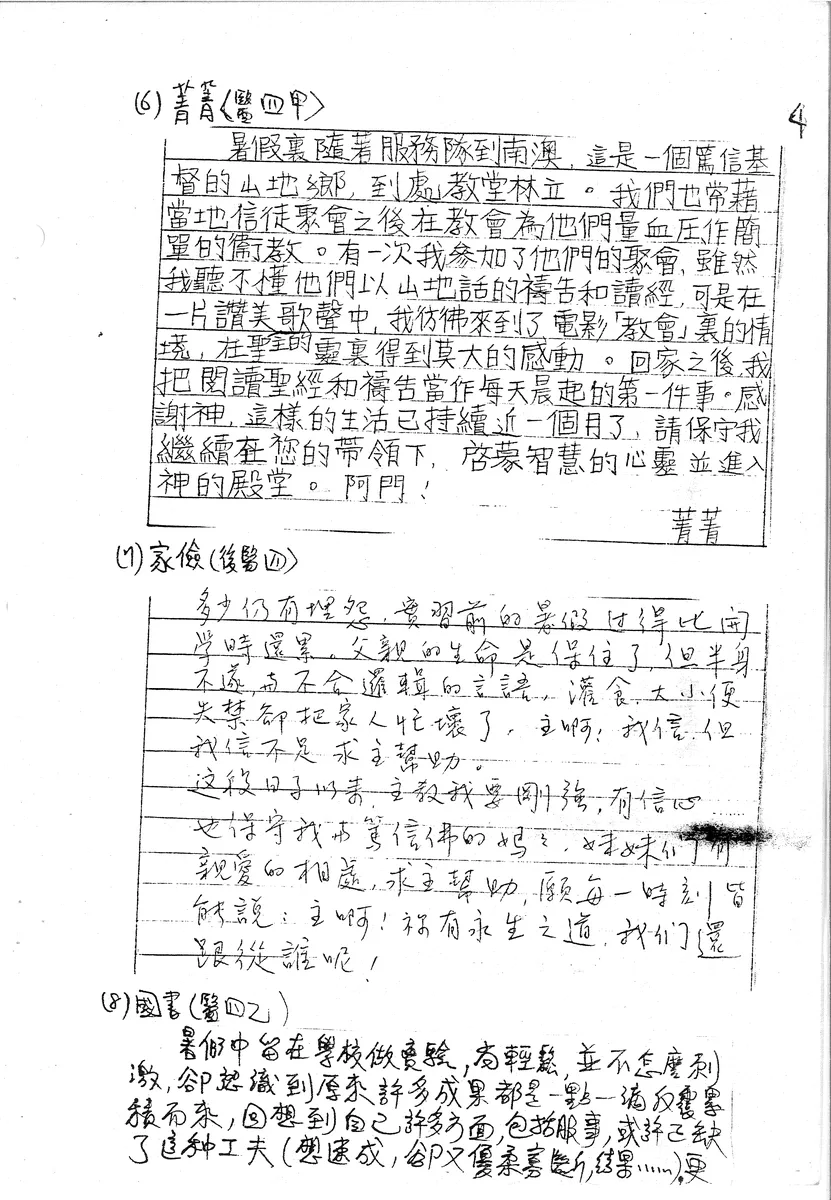 4
(6) 菁菁〈醫四甲〉
暑假裏隨著服務隊到南澳，這是一個篤信基
督的山地鄉，到處教堂林立。我們也常藉
當地信徒聚會之後在教會為他們量血压作簡
單的衞教。有一次我參加了他們的聚會，雖然
我聽不懂他們以山地話的禱告和讀經，可是在
一片讚美歌聲中，我彷彿來到了電影「教會」裏的情
境，在聖的靈裏得到莫大的感動。回家之後，我
把閱讀聖經和禱告當作每天晨起的第一件事。感
謝神，這樣的生活已持續近一個月了，請保守我
繼續在祢的帶領下，啓蒙智慧的心靈並進入
神的殿堂。阿門！
菁菁
(7) 家儉(後醫四〉
多少仍有埋怨，實習前的暑假过得比開
学時還累。父親的生命是保住了，但半身
不遂与不合邏輯的言語，灌食、大小便
失禁卻把家人忙壞了，主啊！我信，但
我信不足求主幫助。
这段日子以來，主教我要剛強，有信心……
也保守我与篤信佛的媽々、妹妹们有
親愛的相處，求主幫助，願每一時刻皆
能說：主啊！祢有永生之道，我们還
跟從誰呢！
(8) 國書(醫四乙)
暑假中留在學校做實驗，尚輕鬆，並不怎麼刺
激，卻認識到原來許多成果都是一點一滴反覆累
積而來，回想到自己許多方面，包括服事，或許已缺
了這种工夫(想速成，卻又優柔寡斷，結果……)，更